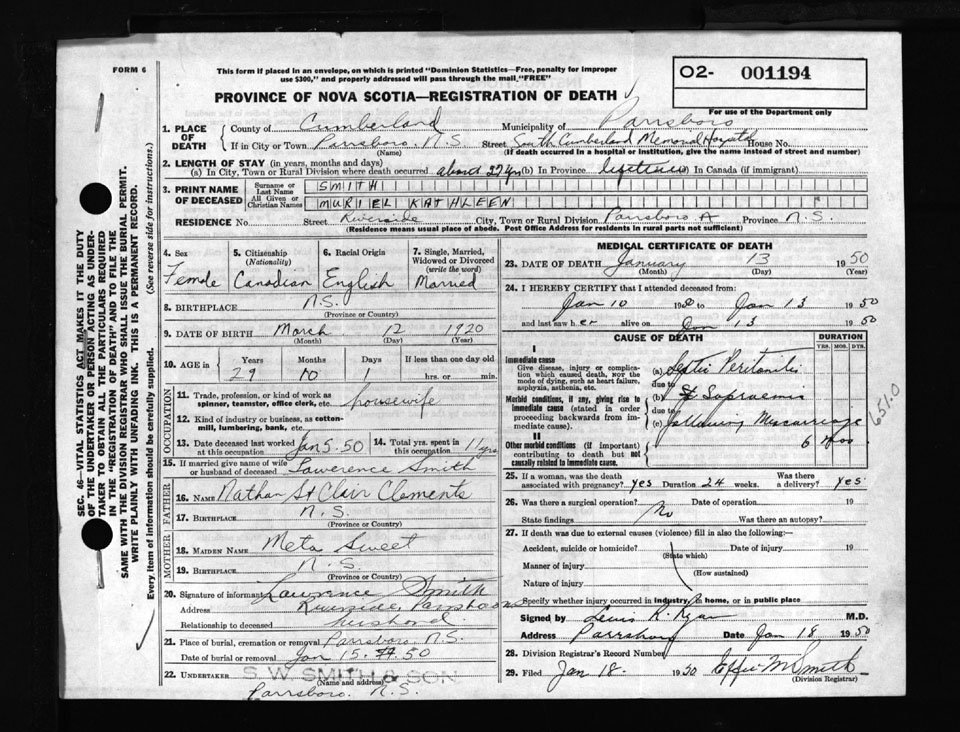 FORM 6
This form if placed in an envelope, on which is printed "Dominion Statistics—Free, penalty for improper
use $300," and properly addressed will pass through the mail "FREE"
O2- 001194
PROVINCE OF NOVA SCOTIA—REGISTRATION OF DEATH
For use of the Department only
1. PLACE OF DEATH
County of Cumberland Municipality of Parrsboro
If in City or Town Parrsboro, N.S. Street South Cumberland Memorial Hospital House No.
(Name) (If death occurred in a hospital or institution, give the name instead of street and number)
2. LENGTH OF STAY (in years, months and days)
(a) In City, Town or Rural Division where death occurred about 22 yrs (b) In Province lifetime (c) In Canada (if immigrant)
3. PRINT NAME OF DECEASED
Surname or Last Name SMITH
All Given or Christian Names MURIEL KATHLEEN
RESIDENCE No. Street Riverside City, Town or Rural Division Parrsboro A Province N.S.
(Residence means usual place of abode. Post Office Address for residents in rural parts not sufficient)
4. Sex Female
5. Citizenship (Nationality) Canadian
6. Racial Origin English
7. Single, Married, Widowed or Divorced (write the word) Married
8. BIRTHPLACE N.S.
(Province or Country)
9. DATE OF BIRTH March 12 1920
(Month) (Day) (Year)
10. AGE in Years Months Days If less than one day old
29 10 1 hrs. or min.
OCCUPATION
11. Trade, profession, or kind of work as
spinner, teamster, office clerk, etc. housewife
12. Kind of industry or business, as cotton-
mill, lumbering, bank, etc.
13. Date deceased last worked at this occupation Jan 5. 50
14. Total yrs. spent in this occupation 11 yrs
15. If married give name of wife
or husband of deceased Lawerence Smith
FATHER
16. NAME Nathan St Clair Clements
17. BIRTHPLACE N.S.
(Province or Country)
MOTHER
18. MAIDEN NAME Meta Sweet
19. BIRTHPLACE N.S.
(Province or Country)
20. Signature of informant Lawrence Smith
Address Riverside, Parrsboro
Relationship to deceased husband
21. Place of burial, cremation or removal Parrsboro, N.S.
Date of burial or removal Jan 15. 50
22. UNDERTAKER S. W. SMITH & SON
(Name and address)
Parrsboro. N.S.
MEDICAL CERTIFICATE OF DEATH
23. DATE OF DEATH January 13 1950
(Month) (Day) (Year)
24. I HEREBY CERTIFY that I attended deceased from:
Jan 10 19 to Jan 13 1950
and last saw her alive on Jan 13 1950
CAUSE OF DEATH DURATION
YRS. MOS. DYS.
I
Immediate cause
Give disease, injury or complica-
tion which caused death, NOT the
mode of dying, such as heart failure,
asphyxia, asthenia, etc.
(a) Septic Peritonitis
due to
Morbid conditions, if any, giving rise to
immediate cause (stated in order
proceeding backwards from im-
mediate cause).
(b) Sapraemia
due to
(c) following Miscarriage
II
Other morbid conditions (if important)
contributing to death but not
causally related to immediate cause.
651.0
25. If a woman, was the death
associated with pregnancy? yes Duration 24 weeks. Was there a delivery? yes
26. Was there a surgical operation? No Date of operation 19
State findings Was there an autopsy?
27. If death was due to external causes (violence) fill in also the following:
Accident, suicide or homicide? Date of injury 19
(State which)
Manner of injury
(How sustained)
Nature of injury
Specify whether injury occurred in industry, in home, or in public place
Signed by Lewis R. Ryan M.D.
Address Parrsboro Date Jan 18 1950
28. Division Registrar's Record Number
29. Filed Jan 18- 1950 Effie M Smith
(Division Registrar)
SEC. 46—VITAL STATISTICS ACT MAKES IT THE DUTY
OF THE UNDERTAKER OR PERSON ACTING AS UNDER-
TAKER TO OBTAIN ALL THE PARTICULARS REQUIRED
IN THE "REGISTRATION OF DEATH" AND TO FILE THE
SAME WITH THE DIVISION REGISTRAR WHO SHALL ISSUE THE BURIAL PERMIT.
WRITE PLAINLY WITH UNFADING INK. THIS IS A PERMANENT RECORD.
Every item of information should be carefully supplied. (See reverse side for instructions.)